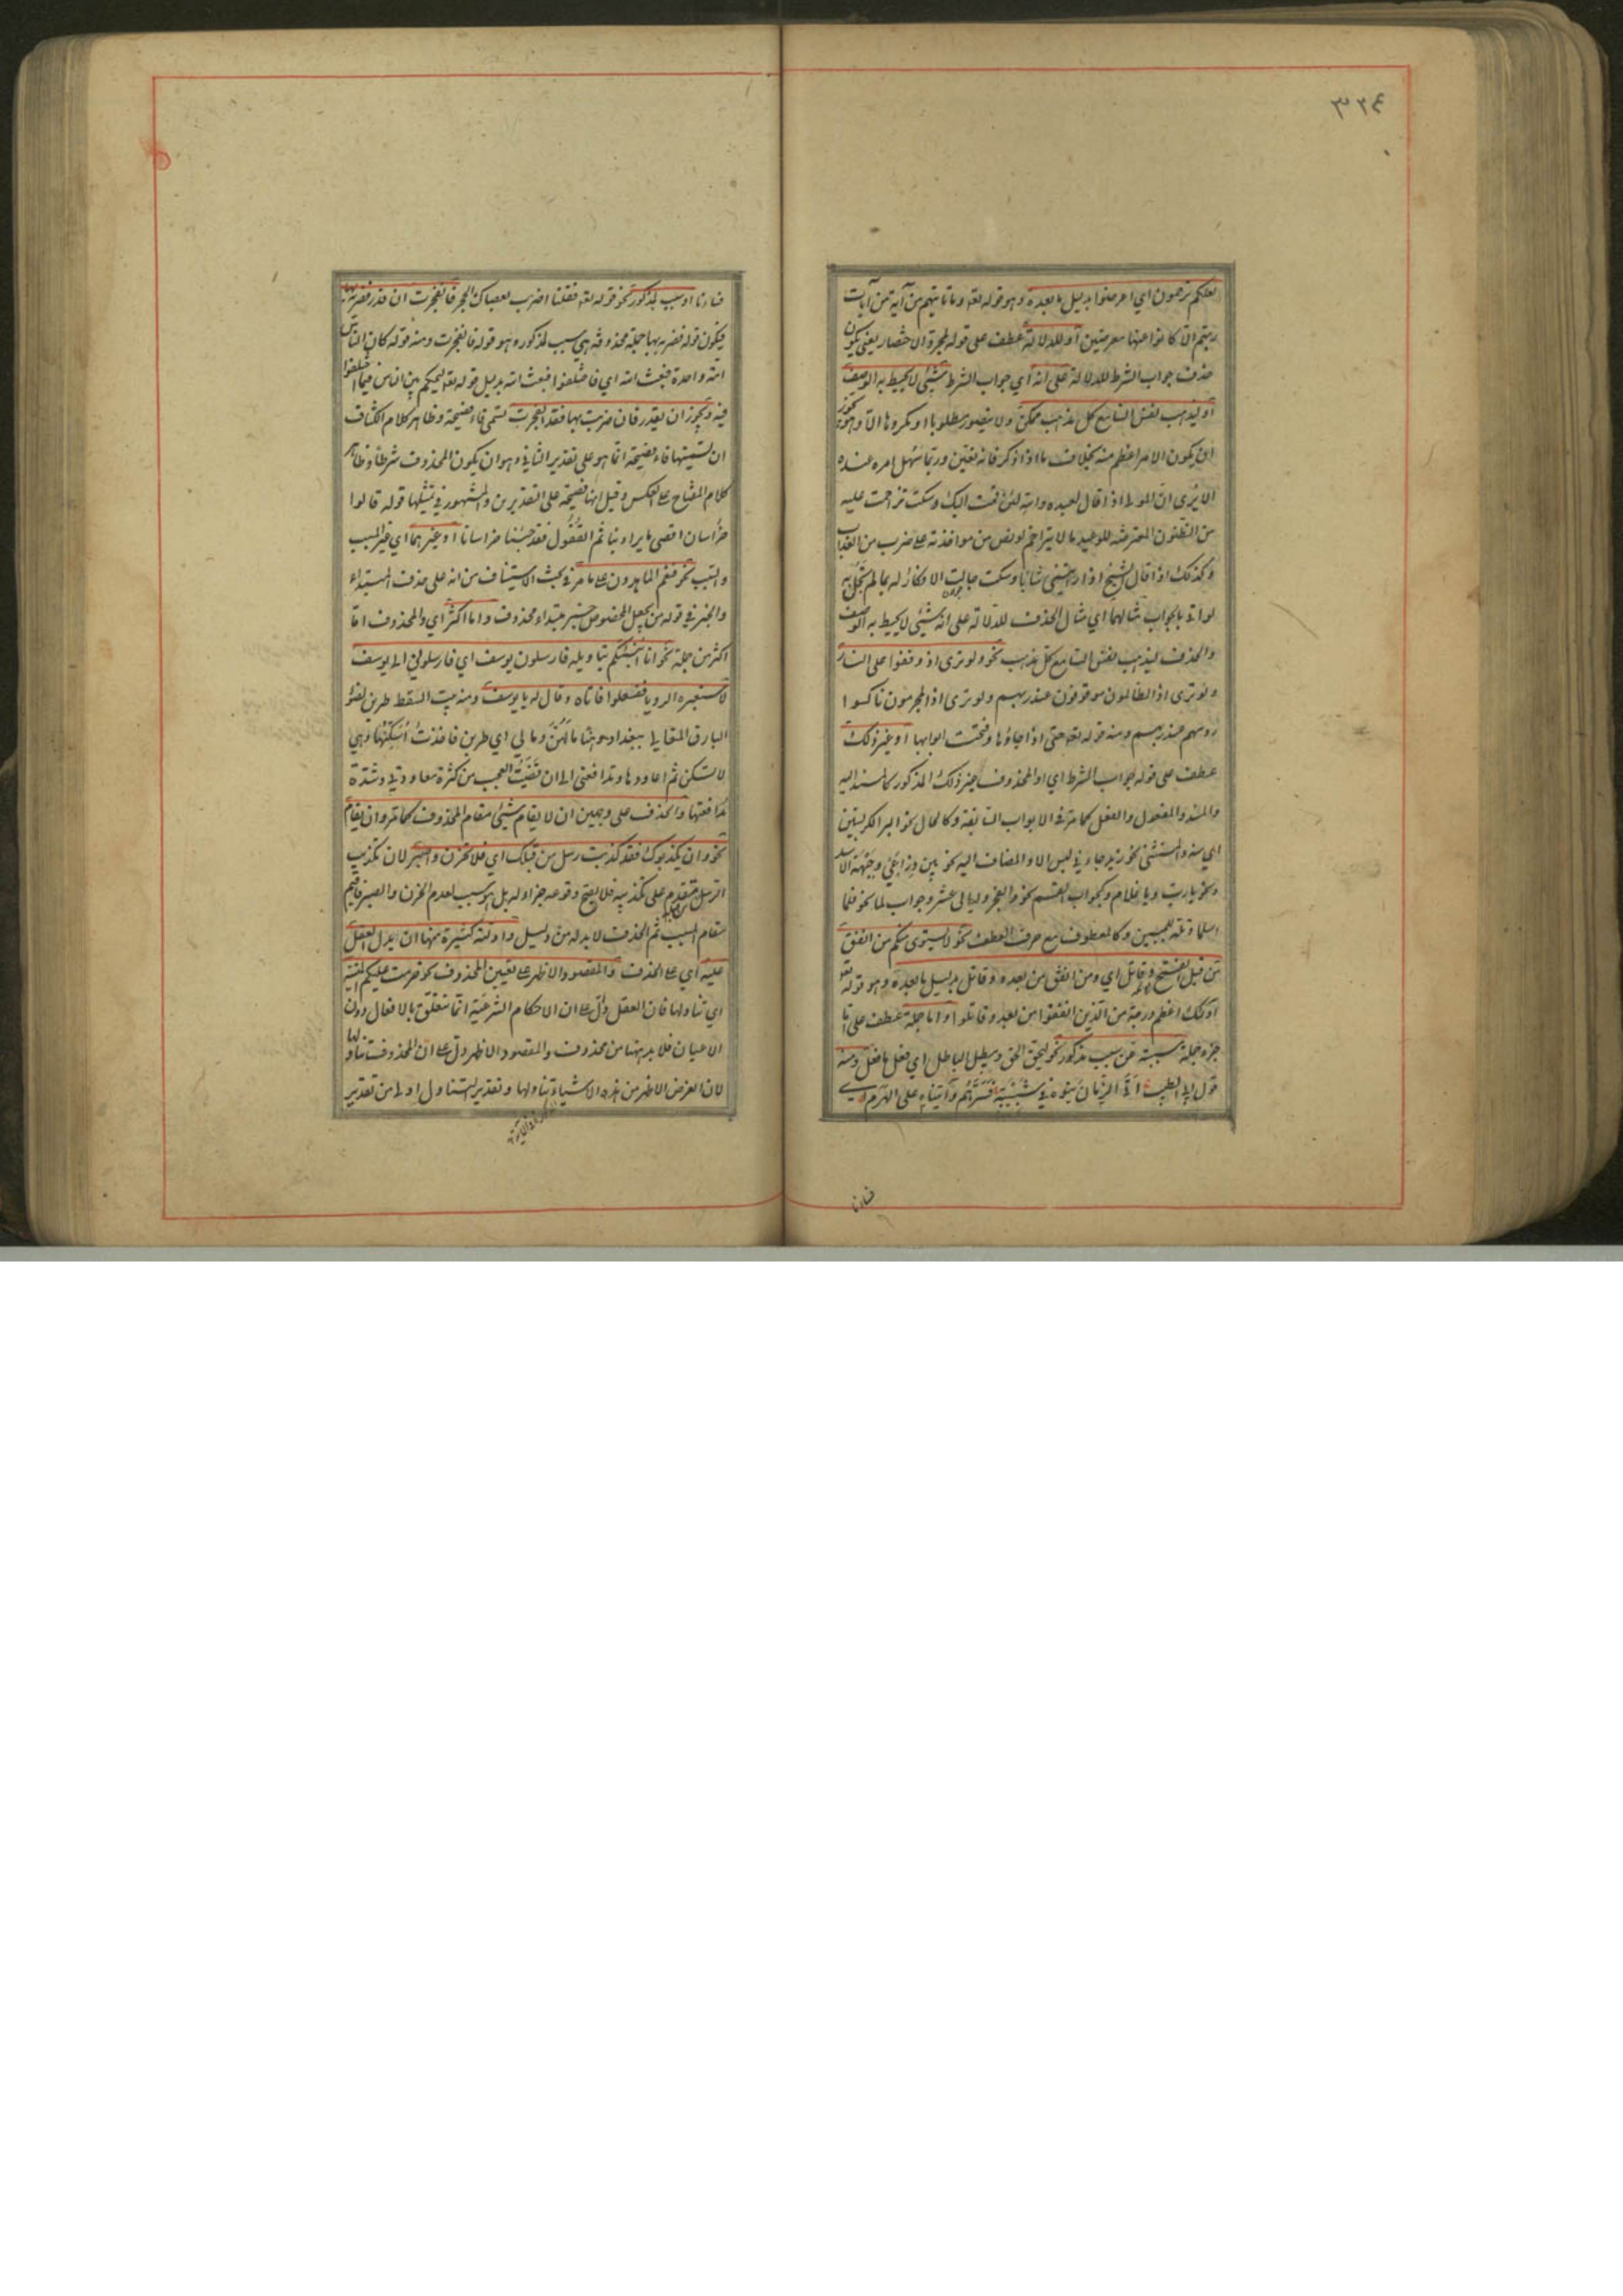 ٣٢٤
لعلكم ترحمون اي اعرضوا بدليل ما بعده وهو قوله تعه وما تاتيهم من آية من آيات
ربهم الا كانوا عنها معرضين او للدلالة عطف على قوله لمجرد الاختصار يعني يكون
حذف جواب الشرط للدلالة على انه اي جواب الشرط شئ لا يحيط به الوصف
او ليذهب نفس السامع كل مذهب ممكن ولا يتصور مطلوبا او مكروها الا وهو يجوز
ان يكون الامر اعظم منه بخلاف ما اذا ذكر فانه يتعين وربما يسهل امره عنده
الا يرى ان المولى اذا قال لعبده والله لئن قمت اليك وسكت تزاحمت عليه
من الظنون المعترضة للوعيد ما لا يتزاحم لو نص من مواخذته على ضرب من العذاب
وكذلك اذا قال الشيخ اذا رايتني شابا وسكت جالت الافكار له بما لم تجل به
لو اتى بالجواب مثالهما اي مثال الحذف للدلالة على انه شئ لا يحيط به الوصف
والحذف ليذهب نفس السامع كل مذهب نحو ولو ترى اذ وقفوا على النار
ولو ترى اذ الظالمون موقوفون عند ربهم ولو ترى اذ المجرمون ناكسوا
روسهم عند ربهم ومنه قوله تعه حتى اذا جاؤها وفتحت ابوابها او غير ذلك
عطف على قوله جواب الشرط اي او المحذوف غير ذلك المذكور كالمسند اليه
والمسند والمفعول والفعل كما مر في الابواب السابقة وكالحال نحو البر الكر بستين
اي منه والمستثنى نحو زيد جاءني ليس الا والمضاف اليه نحو بين ذراعي وجبهة الاسد
ونحو يا رب ويا غلام وكجواب القسم نحو والفجر وليال عشر وجواب لما نحو فلما
اسلما وتله للجبين وكالمعطوف مع حرف العطف نحو لا يستوى منكم من انفق
من قبل الفتح وقاتل اي ومن انفق من بعده وقاتل بدليل ما بعده وهو قوله تعه
اولئك اعظم درجة من الذين انفقوا من بعد وقاتلوا واما جملة عطف على اما
جزء جملة مسببة عن سبب مذكور نحو ليحق الحق ويبطل الباطل اي فعل ما فعل ومنه
قول ابي الطيب اتى الزمان بنوه في شبيبته فسرهم واتيناه على الهرم اي
فساءنا
فساءنا او سبب لمذكور نحو قوله تعه فقلنا اضرب بعصاك الحجر فانفجرت ان قدر فضربه بها
فيكون قوله فضربه بها جملة محذوفة هي سبب لمذكور وهو قوله فانفجرت ومنه قوله كان الناس
امة واحدة فبعث الله اي فاختلفوا فبعث الله بدليل قوله تعه ليحكم بين الناس فيما اختلفوا
فيه ويجوز ان يقدر فان ضربت بها فقد انفجرت تسمى فاء فصيحة وظاهر كلام الكشاف
ان تسميتها فاء فصيحة انما هو على تقدير الثاني وهو ان يكون المحذوف شرطا وظاهر
كلام المفتاح على العكس وقيل انها فصيحة على التقديرين والمشهور في تمثيلها قوله قالوا
خراسان اقصى ما يراد بنا ثم القفول فقد جئنا خراسانا او غيرهما اي غير المسبب
والسبب نحو فنعم الماهدون على ما مر في بحث الاستيناف من انه على حذف المبتداء
والخبر في قوله من يجعل المخصوص خبر مبتداء محذوف واما اكثر اي والمحذوف اما
اكثر من جملة نحو انا انبئكم بتاويله فارسلون يوسف اي فارسلوني الى يوسف
لاستعبره الرويا ففعلوا فاتاه وقال له يا يوسف ومنه بيت السقط طربن لضوء
البارق المتعالي ببغداد وهنا ما لهن وما لي اي طربن فاخذت اسكنها وهي
لا تسكن ثم اعاودها وتدافعني الى ان قضيت العجب من كثرة معاودتي وشدة
مدافعتها والحذف على وجهين ان لا يقام شئ مقام المحذوف كما مر وان يقام
نحو وان يكذبوك فقد كذبت رسل من قبلك اي فلا تحزن واصبر لان تكذيب
الرسل متقدم على تكذيبه فلا يصح وقوعه جزاء له بل هو سبب لعدم الحزن والصبر فاقيم
مقام المسبب ثم الحذف لا بد له من دليل وادلته كثيرة منها ان يدل العقل
عليه اي على الحذف والمقصود الاظهر على تعيين المحذوف نحو حرمت عليكم الميتة
اي تناولها فان العقل دل على ان الاحكام الشرعية انما تتعلق بالافعال دون
الاعيان فلا بد ههنا من محذوف والمقصود الاظهر دل على ان المحذوف تناولها
لان الغرض الاظهر من هذه الاشياء تناولها وتقدير التناول اولى من تقدير